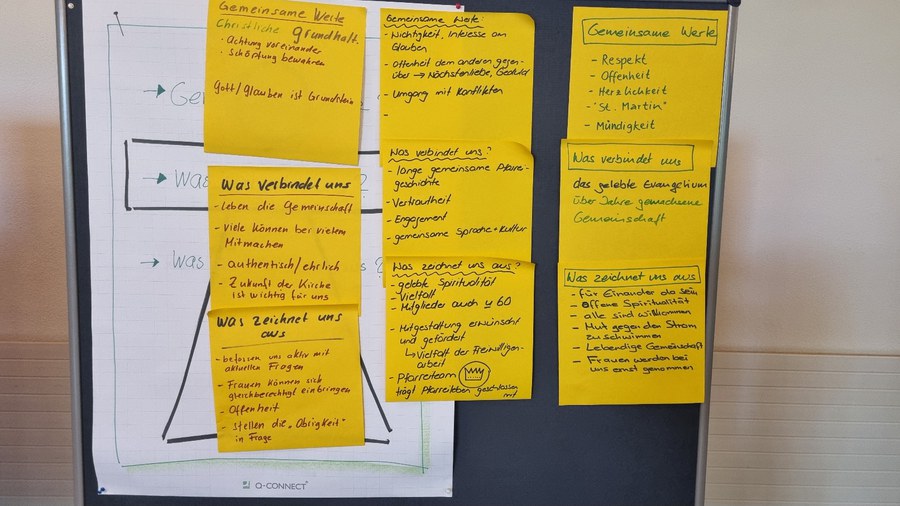 Gemeinsame Werte
Christliche Grundhalt.
· Achtung voreinander
· Schöpfung bewahren
Gott/Glauben ist Grundstein
Was verbindet uns
- Leben die Gemeinschaft
- viele können bei vielem
Mitmachen
- authentisch/ehrlich
- Zukunft der Kirche
ist wichtig für uns
Was zeichnet uns
aus
- befassen uns aktiv mit
aktuellen Fragen
- Frauen können sich
gleichberechtigt einbringen
- Offenheit
- stellen die „Obrigkeit"
in Frage
Gemeinsame Werte:
- Wichtigkeit, Interesse am
Glauben
- Offenheit dem anderen gegen-
über → Nächstenliebe, Geduld
- Umgang mit Konflikten
-
Was verbindet uns?
- lange gemeinsame Pfarrei-
geschichte
- Vertrautheit
- Engagement
- gemeinsame Sprache + Kultur
Was zeichnet uns aus?
- gelebte Spiritualität
- Vielfalt
- Mitglieder auch u 60
- Mitgestaltung erwünscht
und gefördert
↳ Vielfalt der Freiwilligen-
arbeit
- Pfarreiteam
trägt Pfarreileben geschlossen
mit
Gemeinsame Werte
- Respekt
- Offenheit
- Herzlichkeit
- "St. Martin"
- Mündigkeit
Was verbindet uns
das gelebte Evangelium
über Jahre gewachsene
Gemeinschaft
Was zeichnet uns aus
- für Einander da sein
- Offene Spiritualität
- alle sind willkommen
- Mut gegen den Strom
zu schwimmen
- Lebendige Gemeinschaft
- Frauen werden bei
uns ernst genommen
→ Ge
→ Was ?
→ Was s?
Q-CONNECT